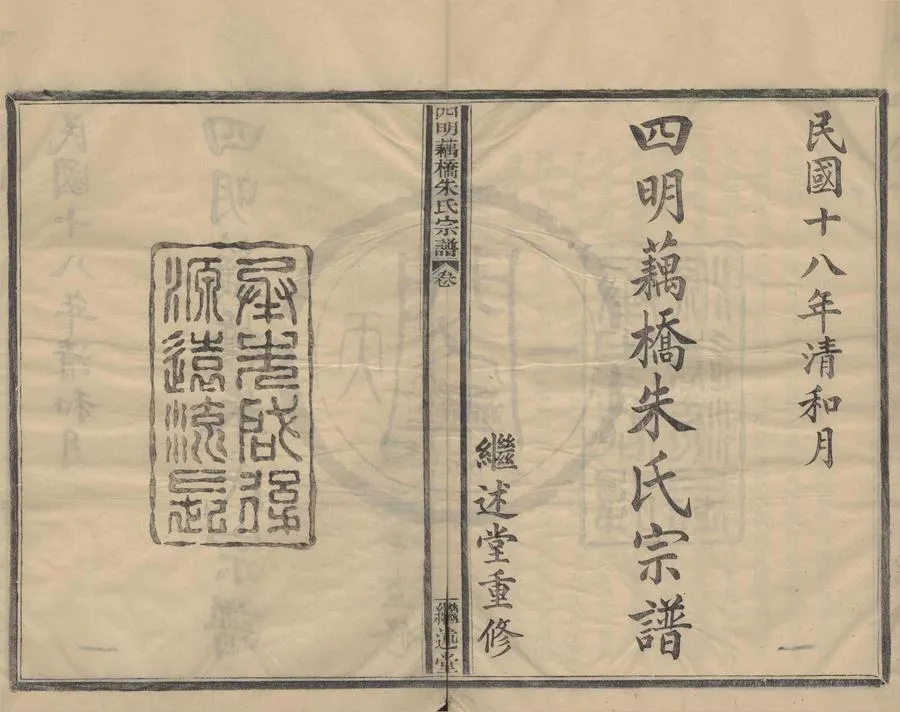 民國十八年清和月
四明藕橋朱氏宗譜
繼述堂重修
四明藕橋朱氏宗譜 卷
繼述堂
承先啟後
源遠流長